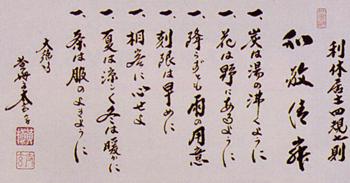 利休居士四規七則
和敬清寂
一、炭は湯の沸くように
一、花は野にあるように
一、降らずとも雨の用意
一、刻限は早めに
一、相客に心せよ
一、夏は涼しく冬は暖かに
一、茶は服のよきように